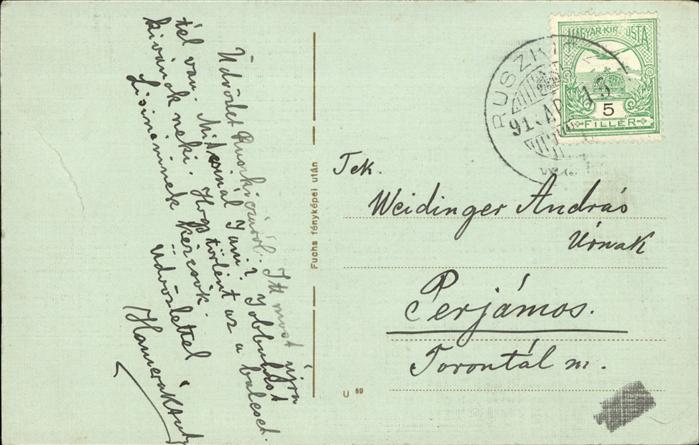 Üdvözlet Ruszkicáról. Itt most újra
tél van. Mit csinál Jani? Jobbulást
kivánok neki. Hogy történt az a baleset.
Lisinéninek kézcsók.
Üdvözlettel
Fuchs fényképei után
U 69
MAGYAR KIR. POSTA
5
FILLÉR
RUSZKI
Tek.
Weidinger András
Úrnak
Perjámos.
Torontál m.